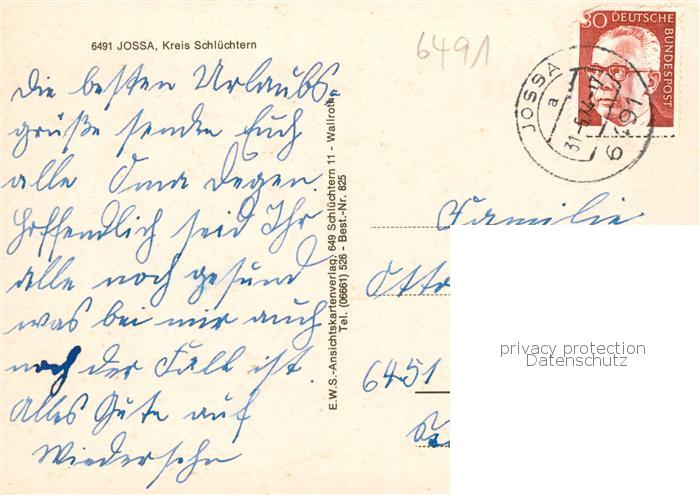 6491 JOSSA, Kreis Schlüchtern
6491
30 DEUTSCHE BUNDESPOST
JOSSA
a
6491
Die besten Urlaubs-
grüße sendet Euch
alle Oma Degen.
Hoffendlich seid Ihr
alle noch gesund
was bei mir auch
noch der Fall ist.
Alles Gute auf
Wiedersehn
E.W.S.-Ansichtskartenverlag, 649 Schlüchtern 11 - Wallroth
Tel. (06661) 526 - Best.-Nr. 825
Familie
Otto
6451
privacy protection
Datenschutz